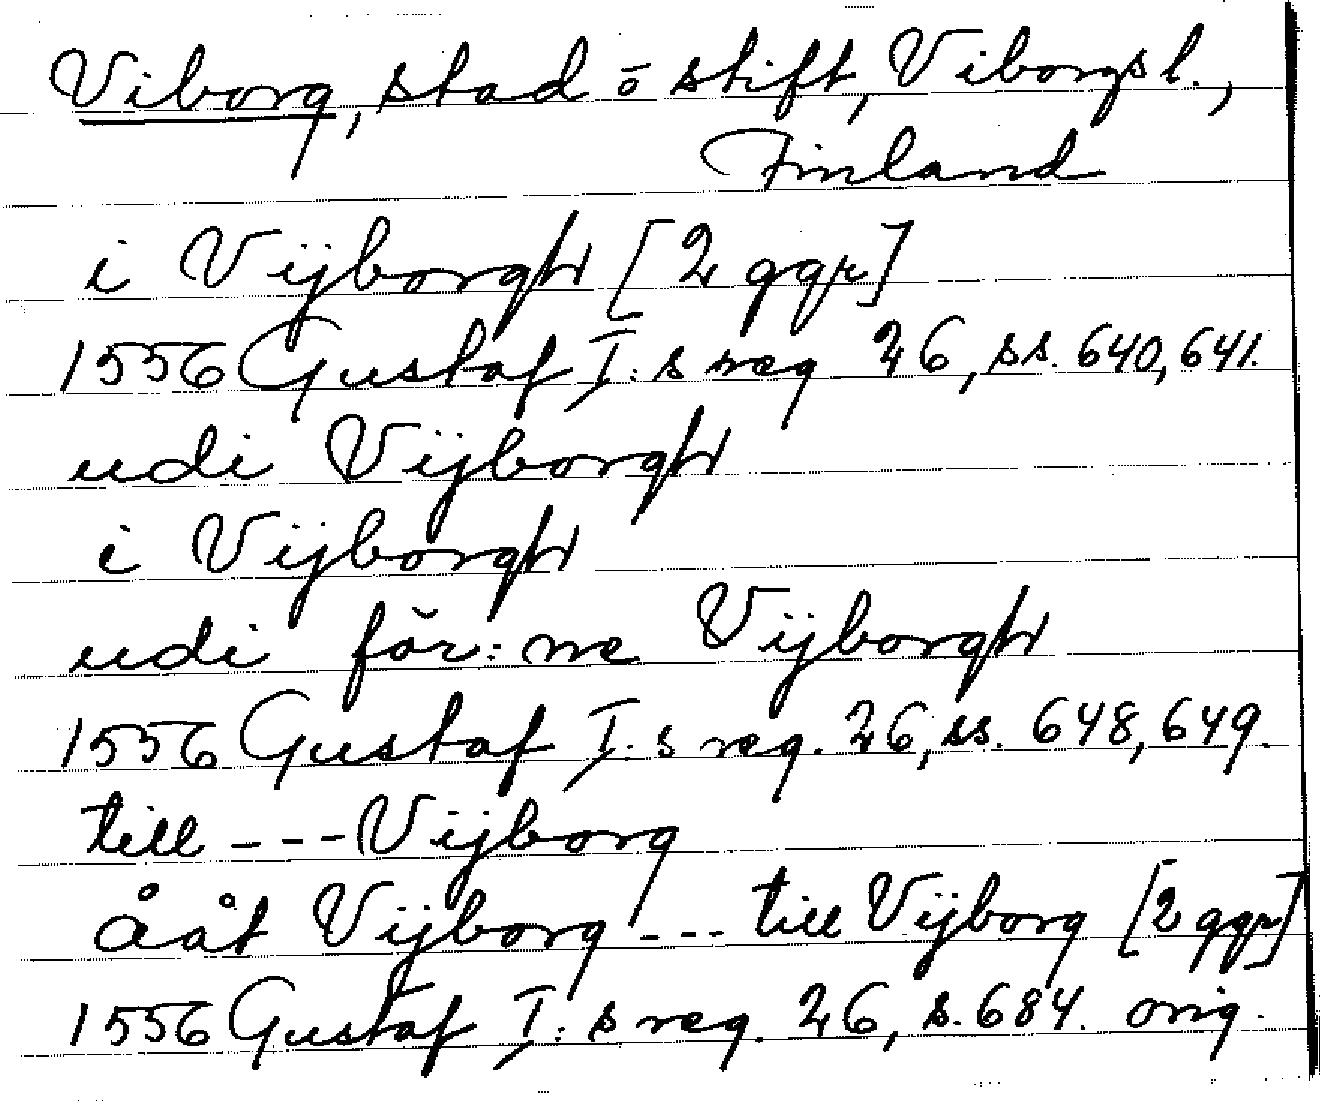 Viborg, stad o stift, Viborgs l.,
Finland
i Vijborgh [2 ggr]
1556 Gustaf I:s reg 26, ss. 640, 641.
udi Vijborgh
i Vijborgh
udi för:ne Vijborgh
1556 Gustaf I:s reg. 26, ss. 648, 649.
till --- Vijborg
ååt Vijborg --- till Vijborg [2 ggr]
1556 Gustaf I:s reg. 26, s. 684. orig.